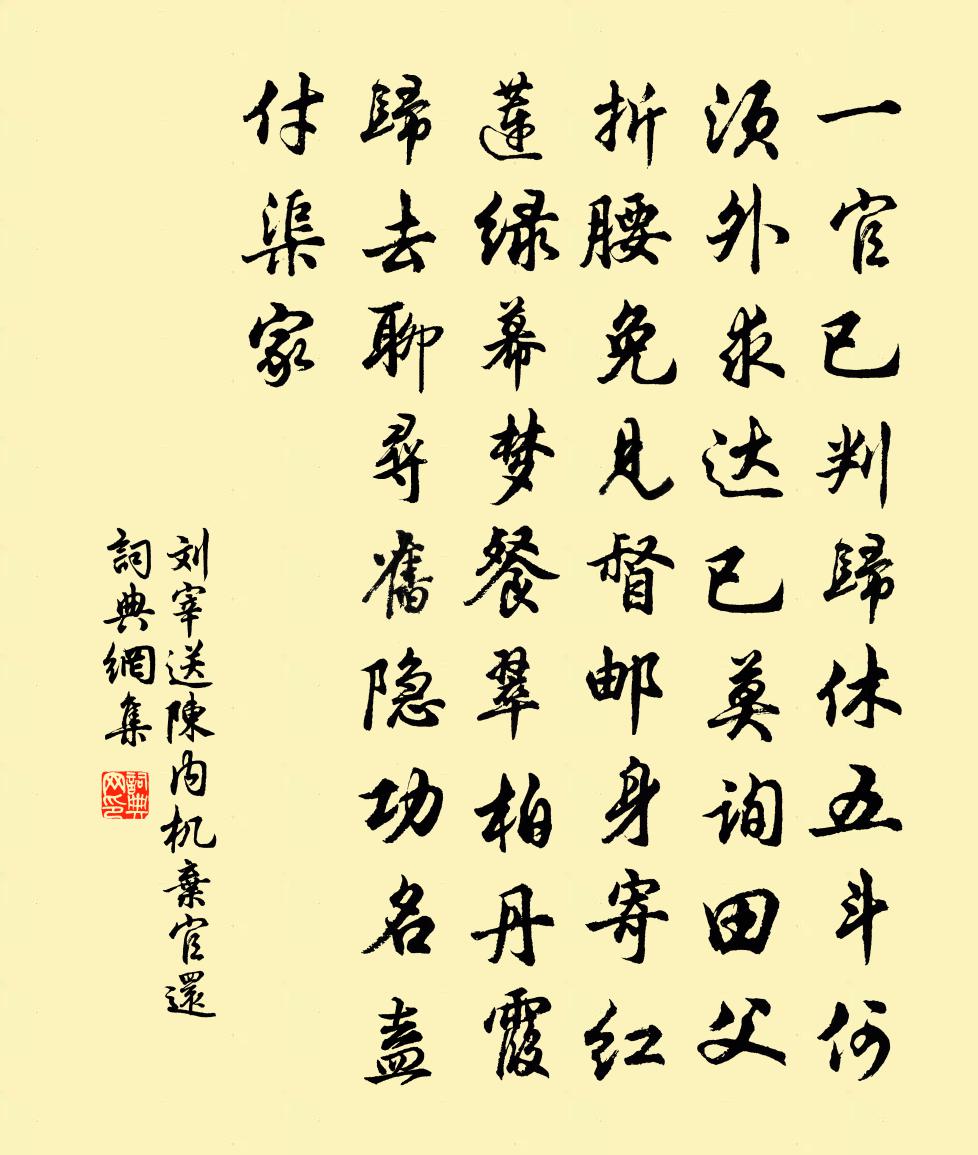 一官已判歸休五斗何
须外求达已莫询田父
折腰免见督邮身寄红
蓮绿幕梦餐翠柏丹霞
歸去聊尋舊隐功名盡
付渠家
刘宰送陳内机棄官還
詞典網集
詞典网印